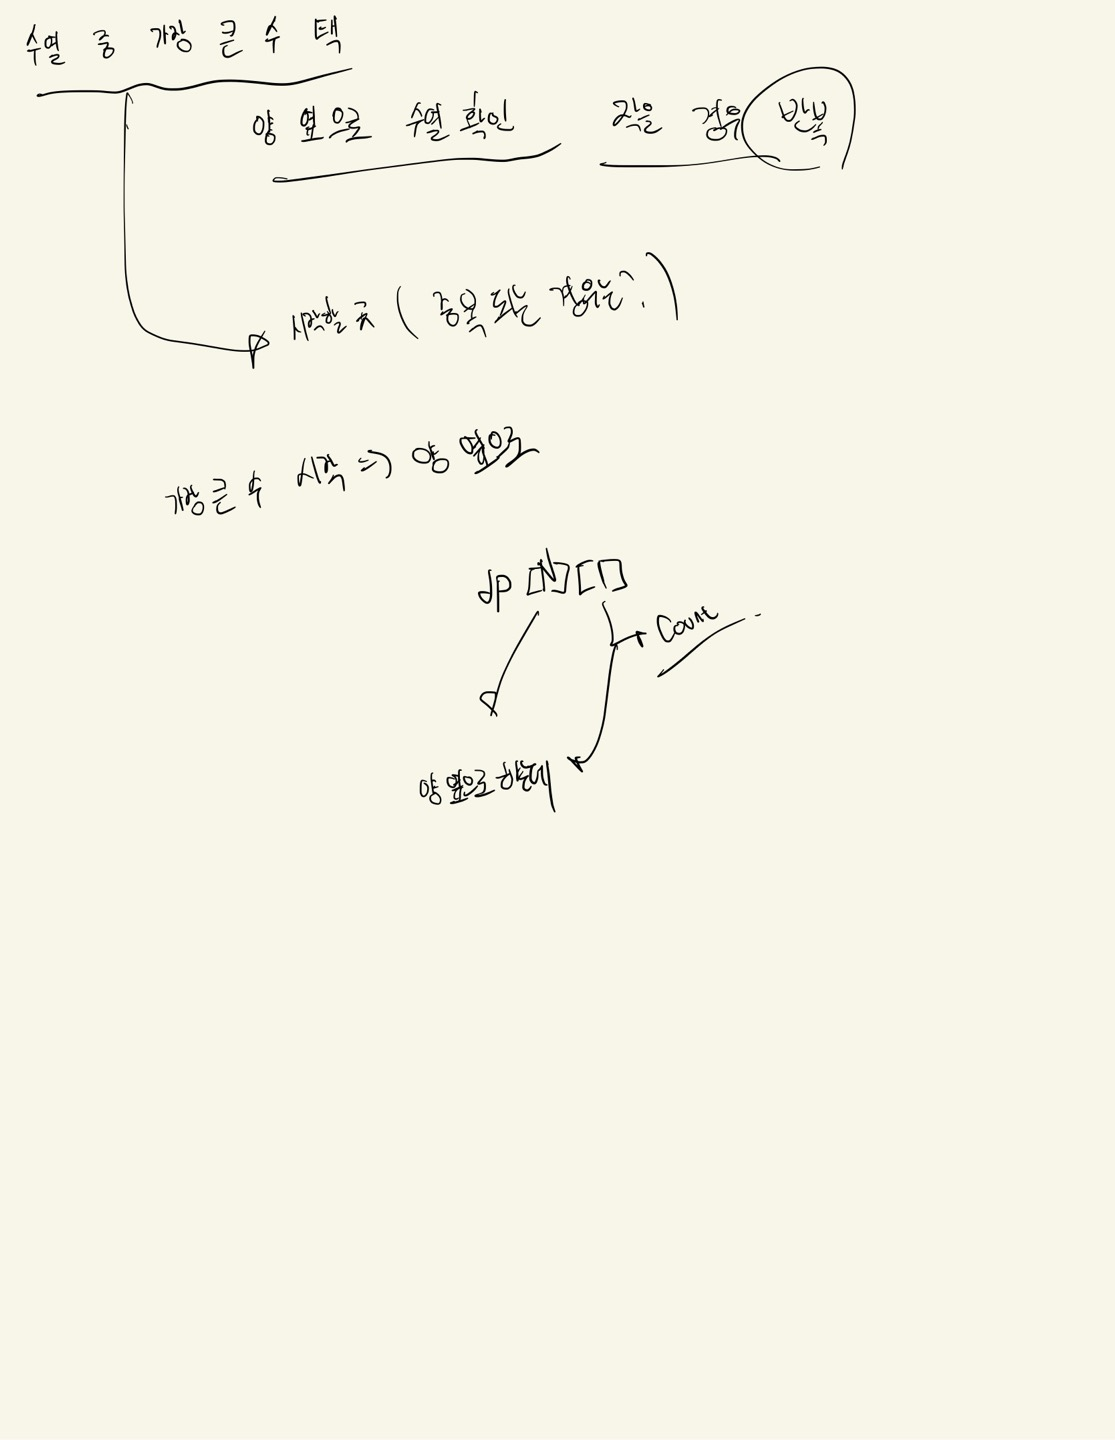 수열 중 가장 큰 수 택
양 옆으로 수열 확인 작은 경우 반복
시작할 곳 ( 중복 되는 경우는? )
가장 큰 수 시작 => 양 옆으로
dp [N][1]
Count
양 옆으로 하는데